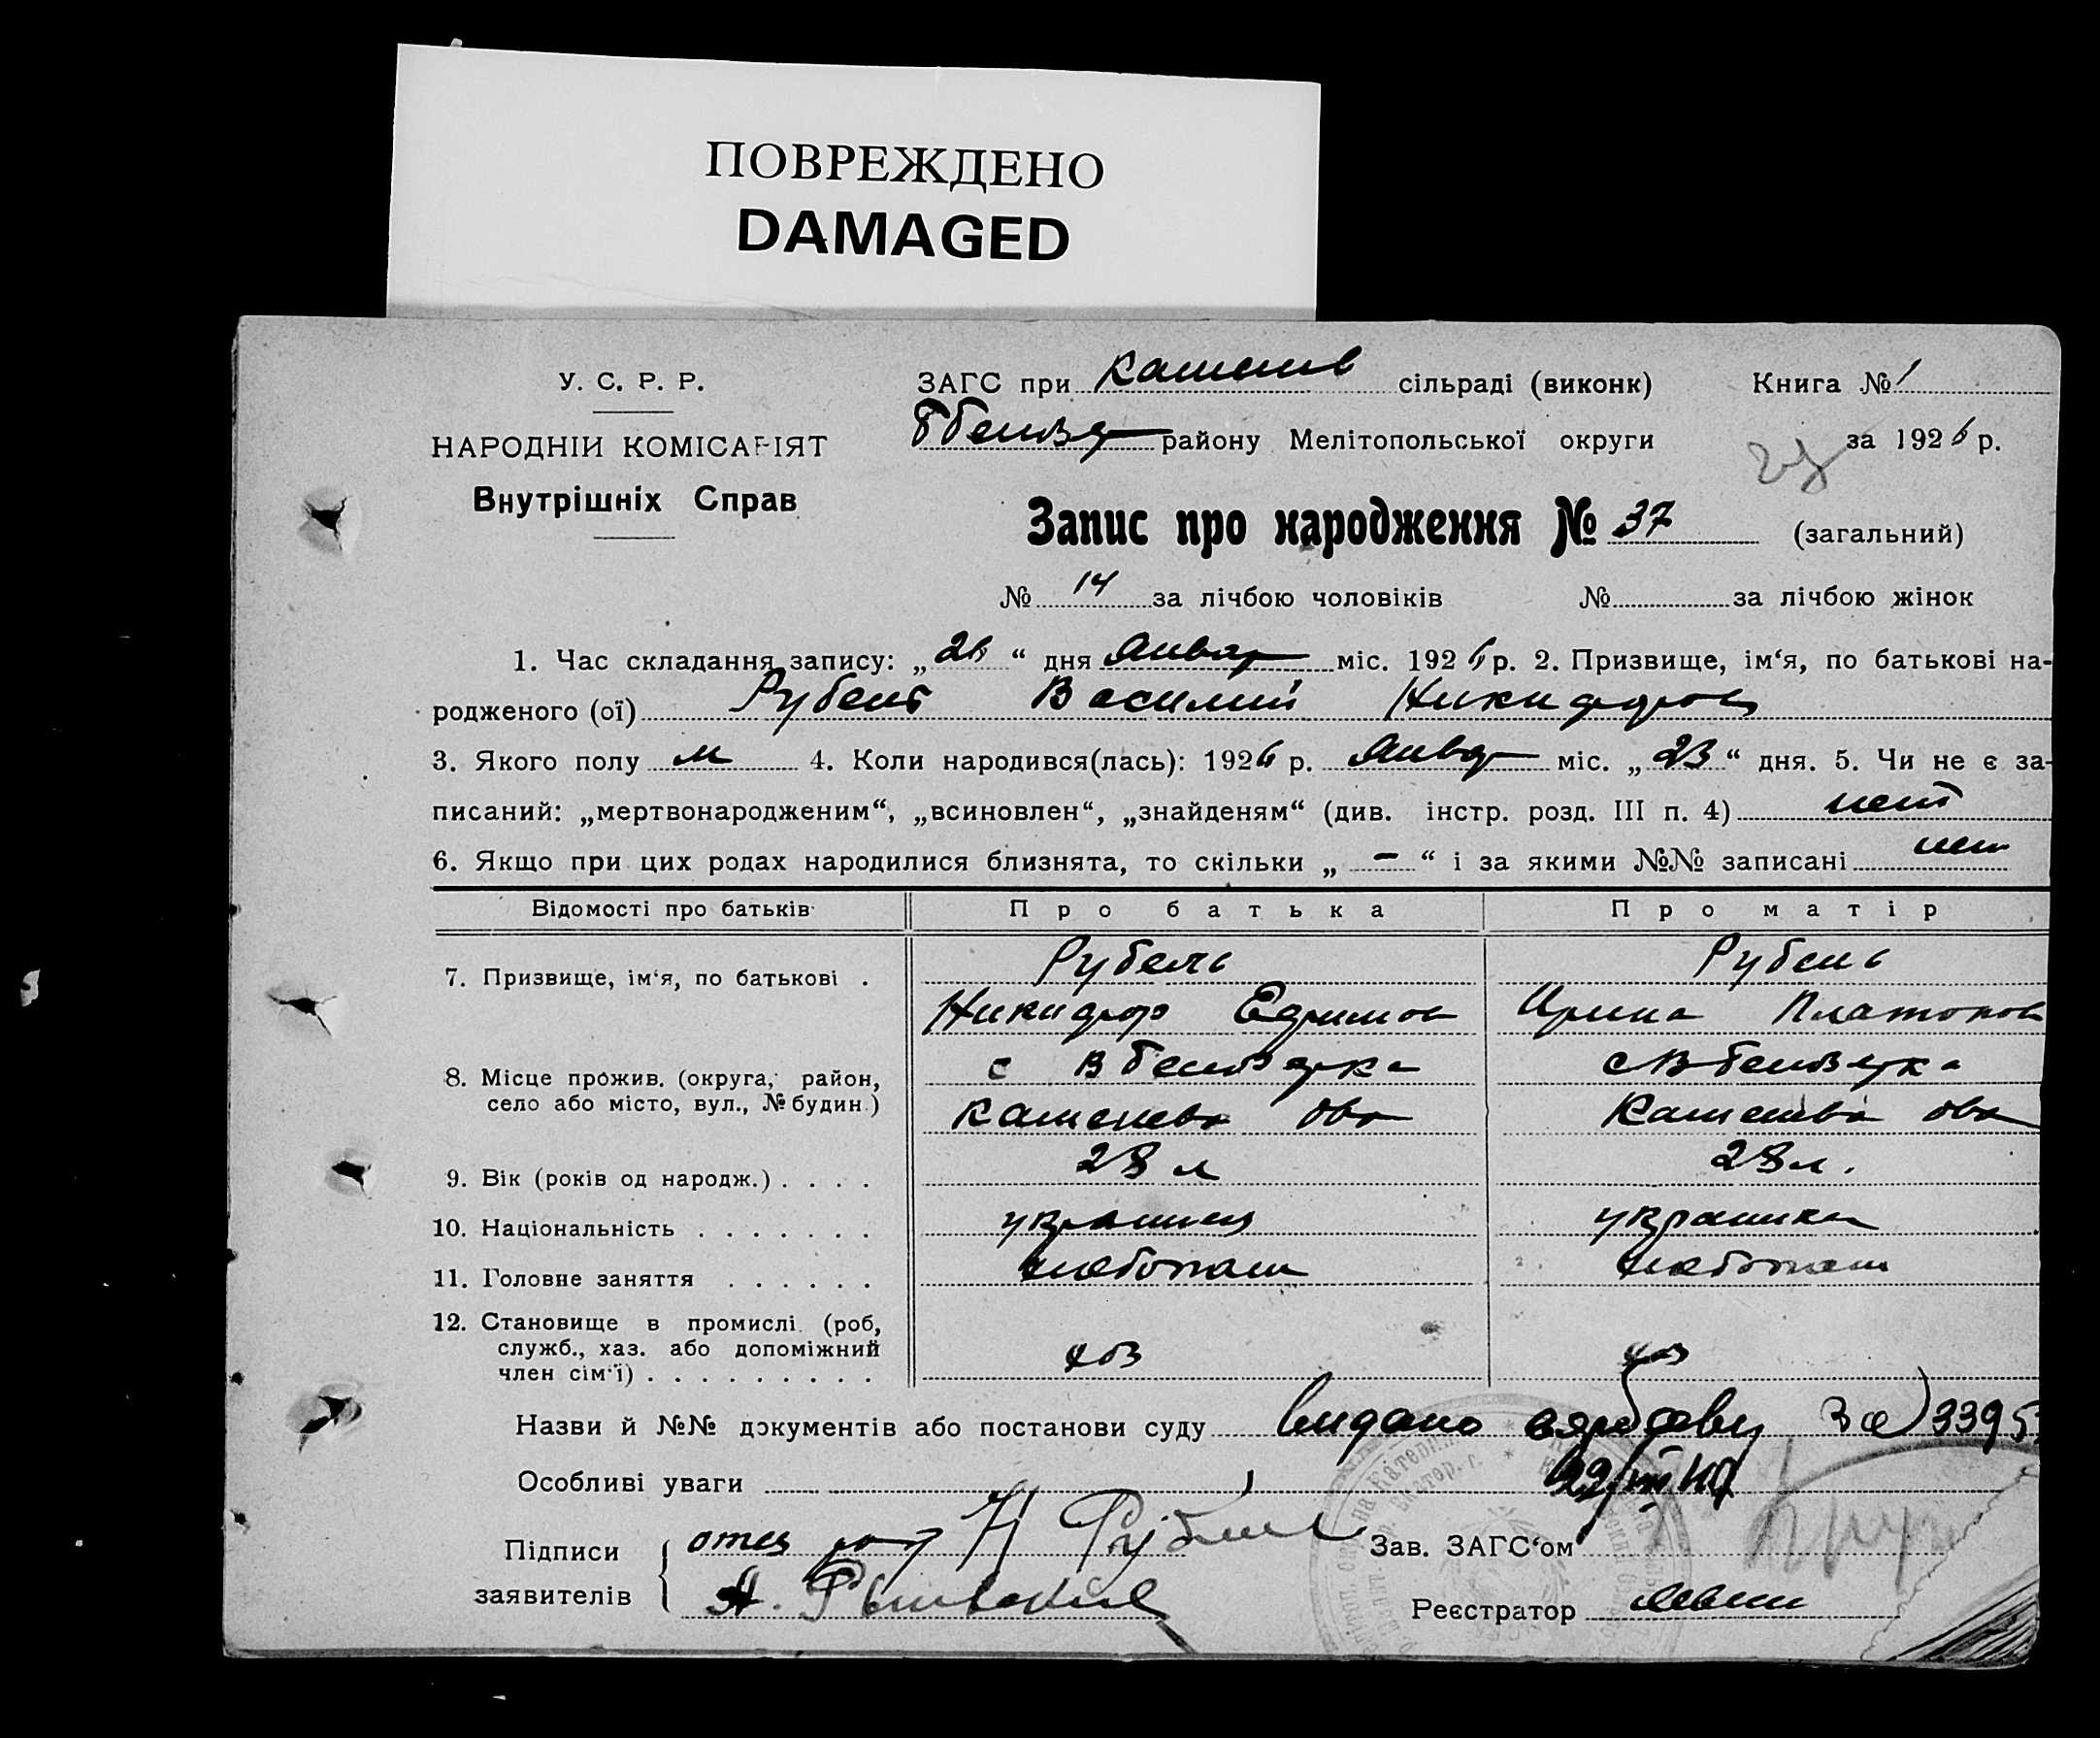 ПОВРЕЖДЕНО
DAMAGED
У. С. Р. Р.
ЗАГС при Каменев сільраді (виконк) Книга № 1
НАРОДНІЙ КОМІСАРІЯТ
району Мелітопольської округи за 1926 р.
Внутрішніх Справ
Запис про народження № 37 (загальний)
№ 14 за лічбою чоловіків № за лічбою жінок
1. Час складання запису: „26“ дня Январ міс. 1926 р. 2. Призвище, ім‘я, по батькові на-
родженого (ої) Рубель Василий Никифоров
3. Якого полу м 4. Коли народився(лась): 1926 р. Январ міс. „23“ дня. 5. Чи не є за-
писаний: „мертвонародженим“, „всиновлен“, „знайденям“ (див. інстр. розд. III п. 4) нет
6. Якщо при цих родах народилися близнята, то скільки „ — “ і за якими №№ записані нет
Відомості про батьків Про батька Про матір
7. Призвище, ім‘я, по батькові . Рубель Рубель
Никифор Ефимов Ирина Платонов
8. Місце прожив. (округа, район, с В с В
село або місто, вул., № будин.) Каменева Каменева
9. Вік (років од народж.) . . . . 28 л 28 л.
10. Національність . . . . . . . украинец украинка
11. Головне заняття . . . . . . хлебопаш хлебопаш
12. Становище в промислі (роб,
служб., хаз. або допоміжний
член сім‘ї) . . . . . . . . . хоз хоз
Назви й №№ документів або постанови суду видано за 3395
Особливі уваги
Підписи отец Н Рубель Зав. ЗАГС‘ом
заявителів
Реєстратор